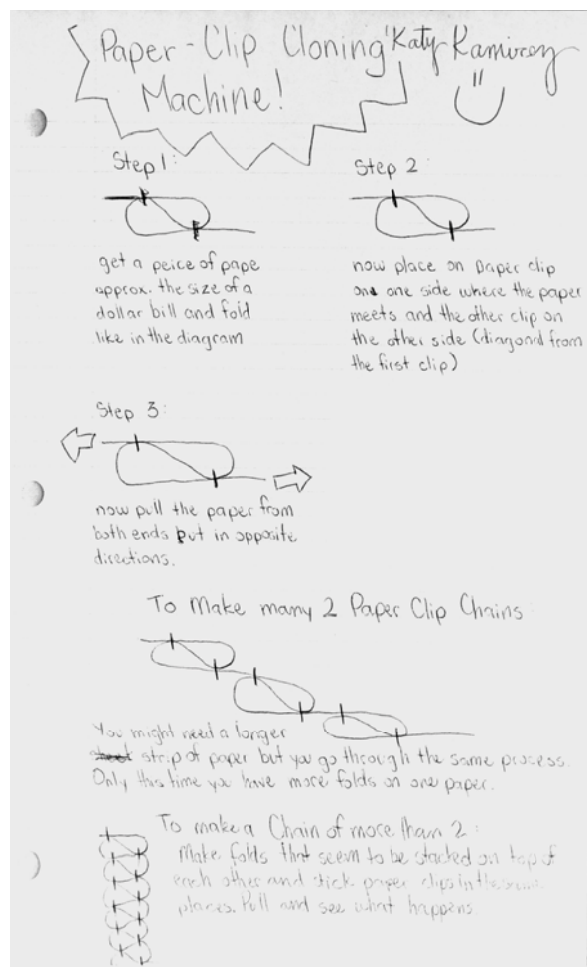 Paper-Clip Cloning Katy Ramirez
Machine!
Step 1:
get a peice of pape
approx. the size of a
dollar bill and fold
like in the diagram
Step 2:
now place on paper clip
one side where the paper
meets and the other clip on
the other side (diagonal from
the first clip)
Step 3:
now pull the paper from
both ends but in opposite
directions.
To Make many 2 Paper Clip Chains:
You might need a longer
strip of paper but you go through the same process.
Only this time you have more folds on one paper.
To make a Chain of more than 2:
Make folds that seem to be stacked on top of
each other and stick paper clips in the same
places. Pull and see what happens